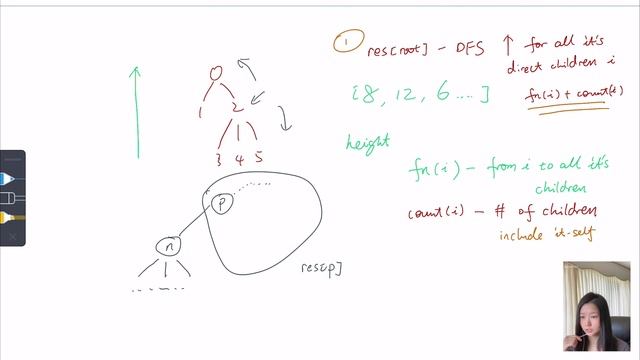 ① res[root] - DFS ↑ for all it's
direct children i
fn(i) + count(i)
[8, 12, 6 .... ]
height
fn(i) - from i to all it's
children
count(i) - # of children
include it-self
0
1 2
3 4 5
p
n
res[p]